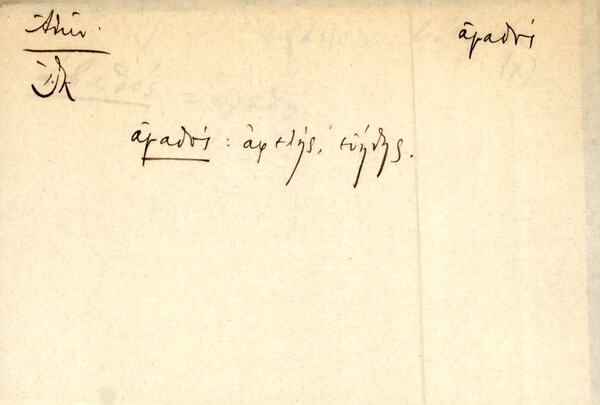 Ἀθῆν.
ἀγαθός
ἀγαθός : ἀφελής, εὐήθης.